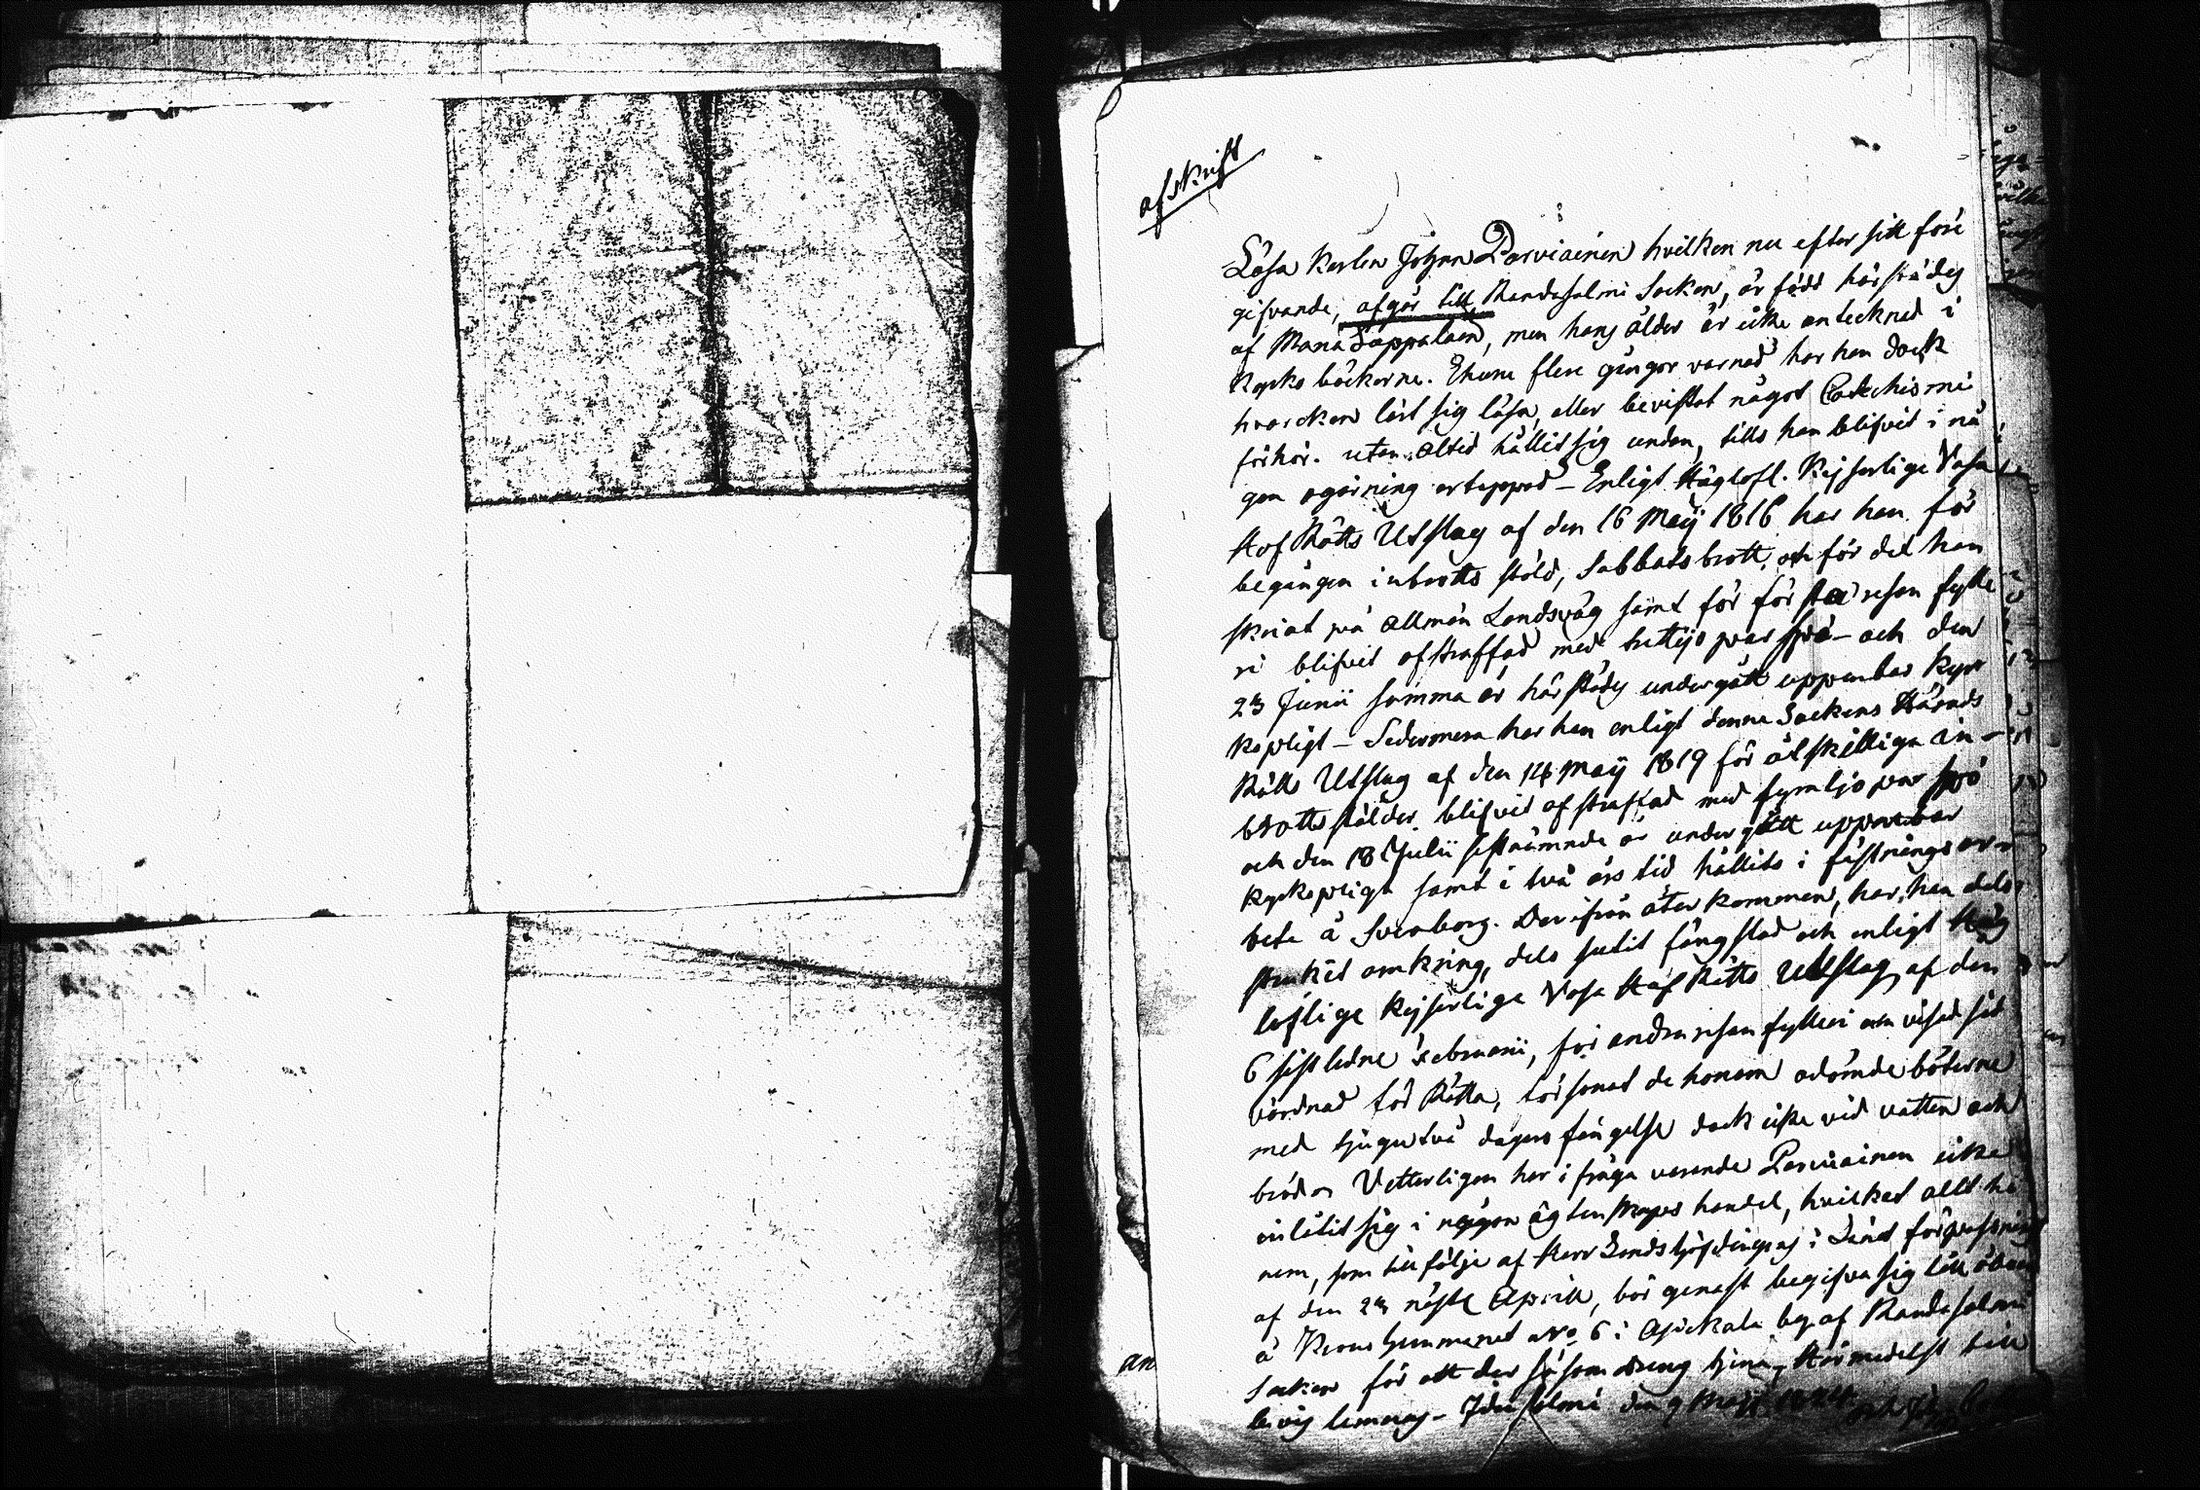 afskrift
Lösa Karlen Johan Parviainen hvilken nu efter sitt före
gifvande, afgår till Randasalmi Socken, är född härstädes
af Mana Tappalaen, men hans ålder är icke antecknad i
Kyrko böckerne. Ehuru flere gångor varnad har han dock
hvarcken lärt sig läsa, eller bevistat något Catechismi
förhör. utan altid hållit sig undan, tills han blifvit i nå
gon ogärning ertappad – Enligt Höglofl. Kejserlige Vasa
Hof Rätts Utslag af den 16 Maij 1816 har han för
begången inbrotts stöld, Sabbatsbrott, och för det han
skriat på allmän Landsväg samt för första resan fylle
ri blifvit afstraffad med trettijo par spö – och den
23 Junii samma år härstädes undergått uppenbar Kyr
kopligt – Sedermera har han enligt denne Sockens Härads
Rätts Utslag af den 14 Maij 1819 för åtskilliga in–
brotts stölder blifvit afstraffad med fyratijo par spö
och den 18 Julii sistnämnde år undergått uppenbar
Kyrkopligt samt i två års tid hållits i fästnings ar–
bete å Sveaborg. Derifrån åter kommen, har han dels
strukit omkring, dels sutit fängslad och enligt Hög
loflige Kejserlige Vasa Hof Rätts Utslag af den
6 sistledne Februarii, för andra resan fylleri och visad sid
vördnad för Rätta, försonat de honom ådömde böterne
med tjugutvå dagars fängelse dock icke vid vatten och
bröd – Vetterligen har i fråga varande Parviainen icke
inlåtit sig i någon ägtenskaps handel, hvilket allt ho
nom, som till följe af Herr Landshöfdingens i Länet förpassning
af den 23 nästl. Aprill, bör genast begifva sig till åbon
å Krono hemmanet No 6 i by af Randasalmi
Socken för att der såsom dräng tjena, Härmedelst till
bevis lemnas – Idensalmi den 9 Maij 1824
an